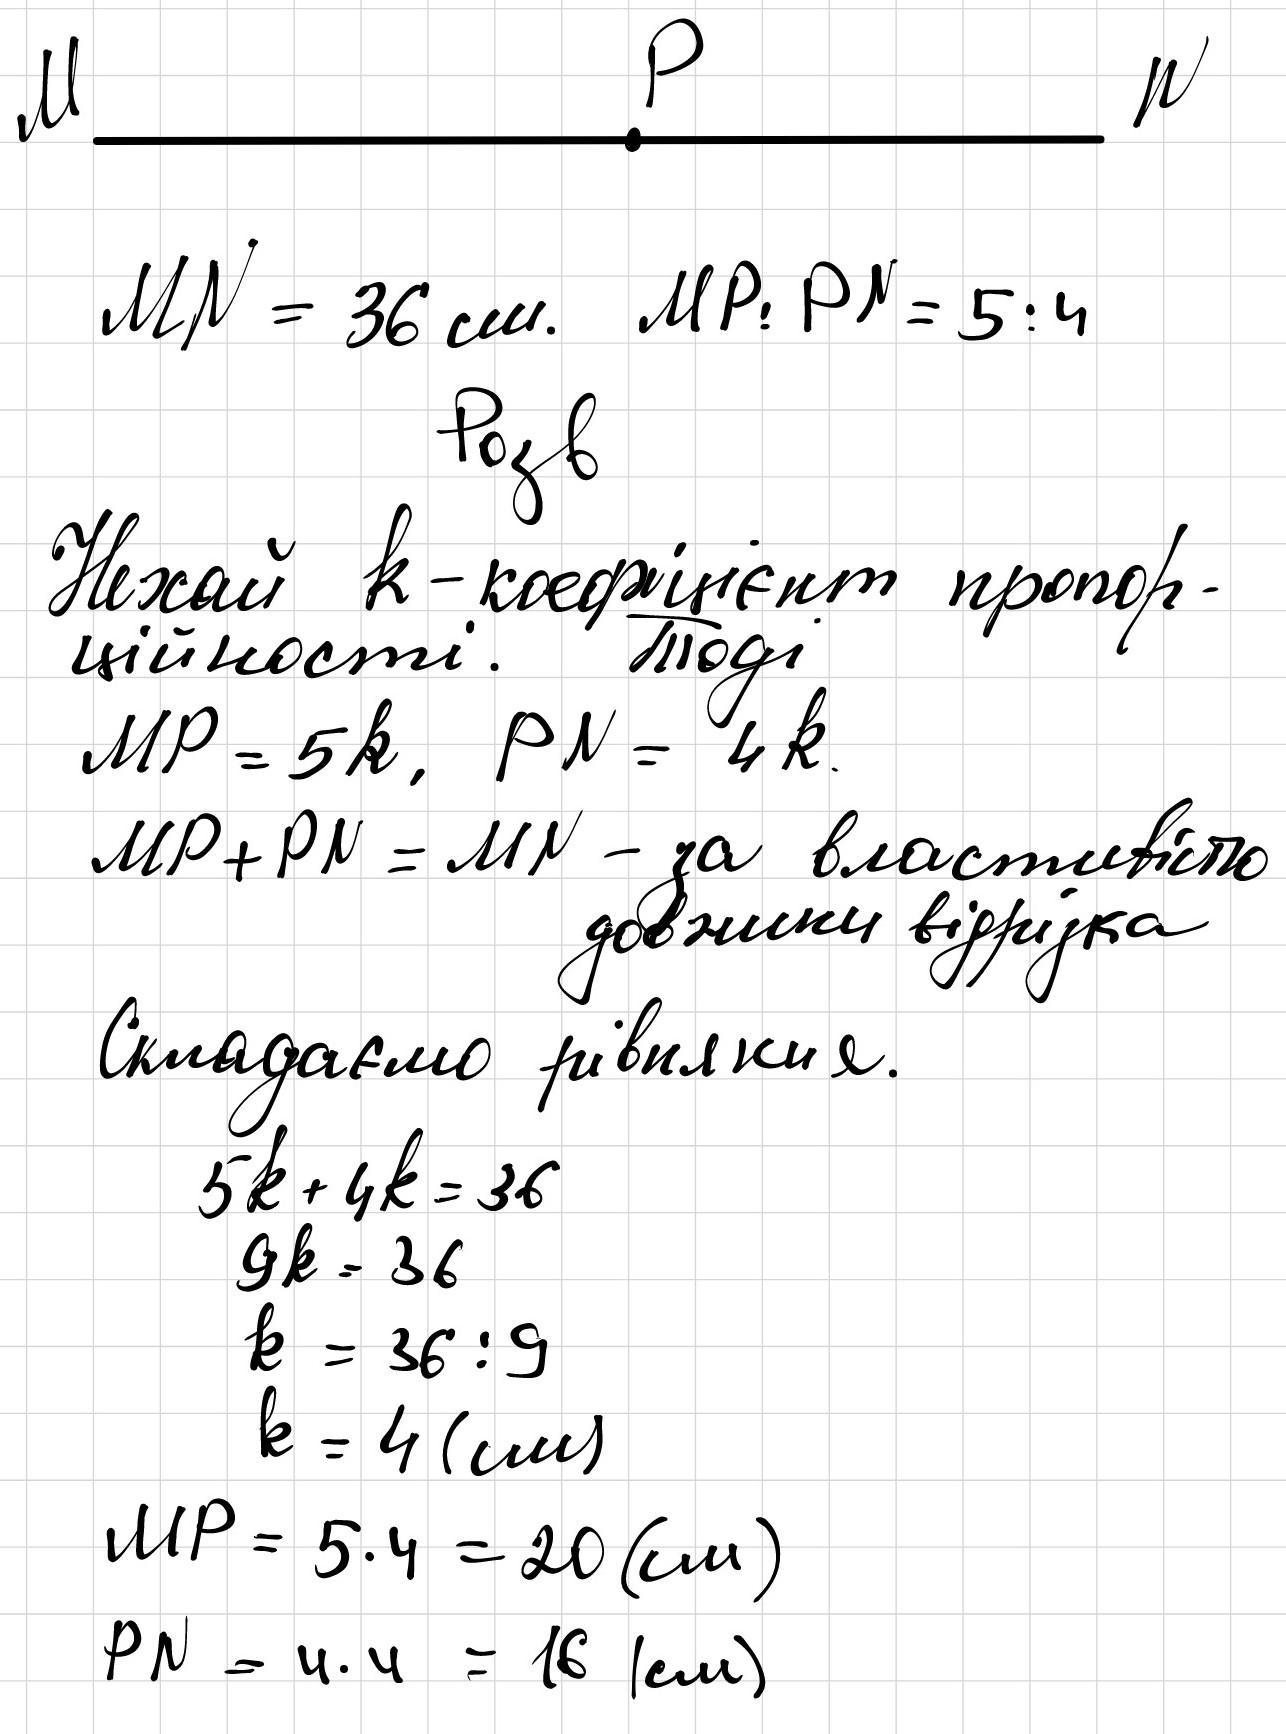 M P N
MN = 36 см. MP : PN = 5 : 4
Розв
Нехай k - коефіцієнт пропор-
ційності. Тоді
MP = 5k, PN = 4k.
MP + PN = MN - за властивістю
довжини відрізка
Складаємо рівняння.
5k + 4k = 36
9k = 36
k = 36 : 9
k = 4 (см)
MP = 5 · 4 = 20 (см)
PN = 4 · 4 = 16 (см)